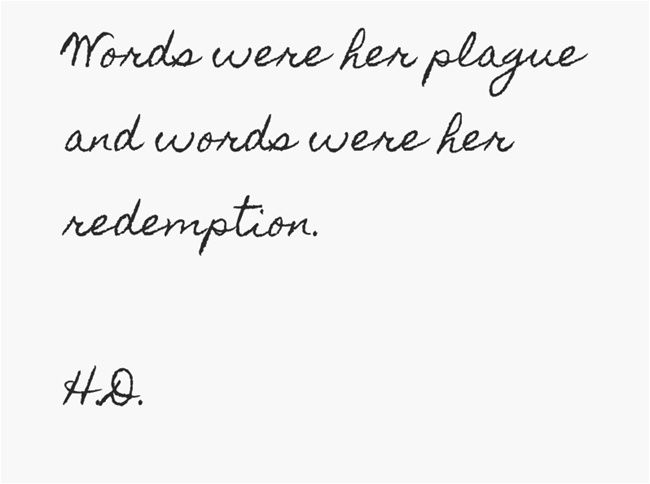 Words were her plague
and words were her
redemption.
H.D.